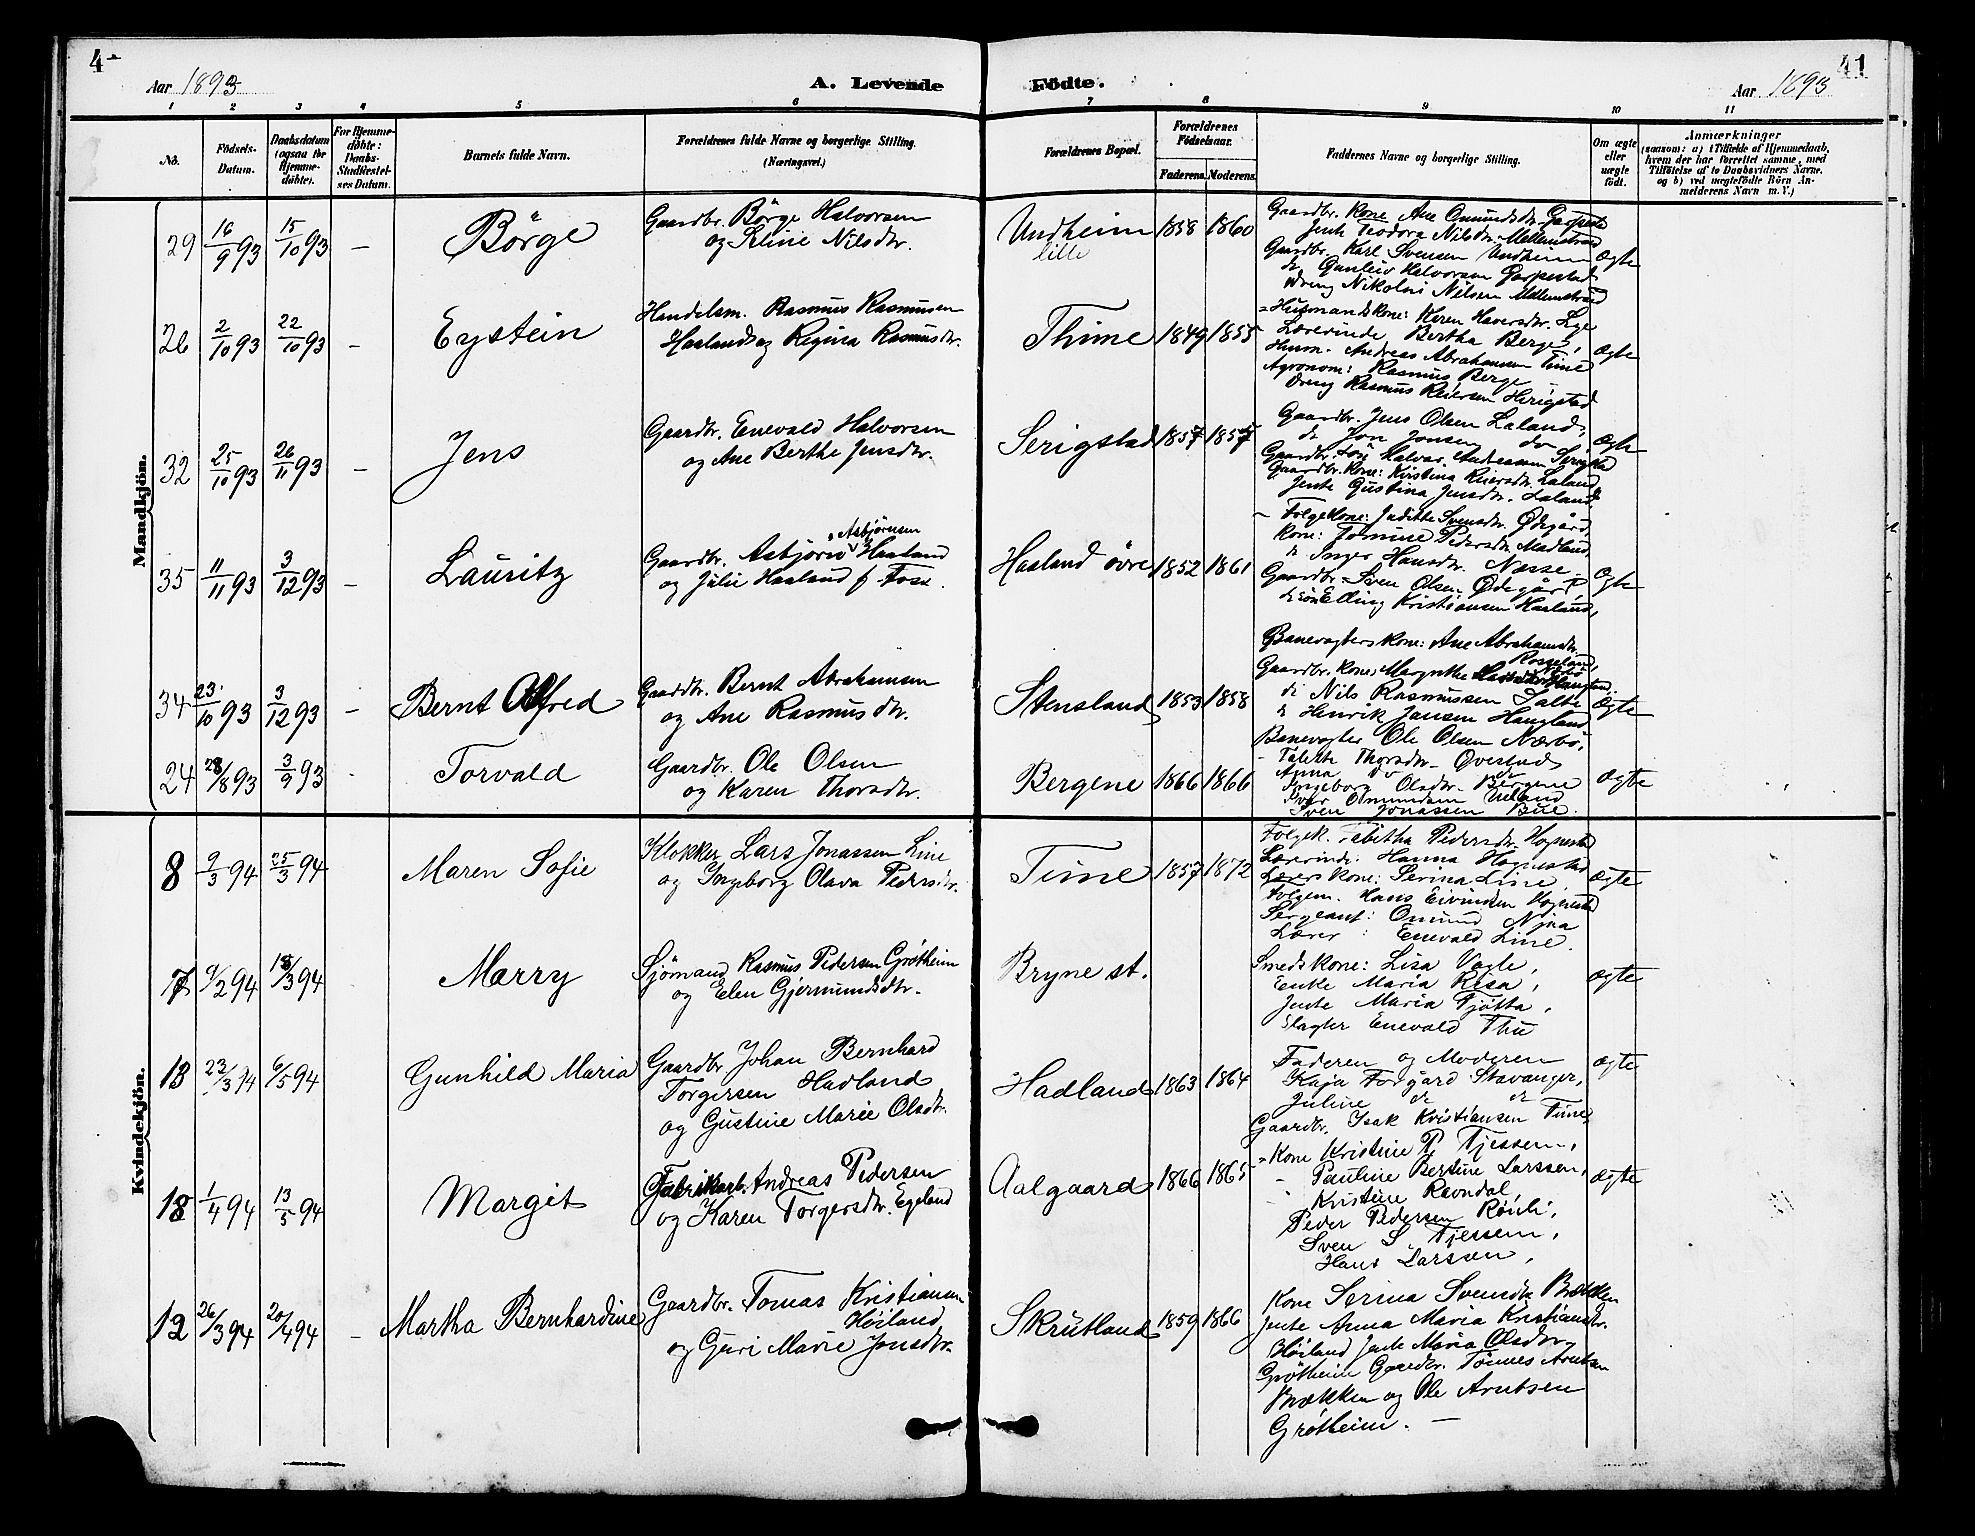 4
Aar 1893
A. Levende
Födte.
Aar 1893
41
1 2 3 4 5 6 7 8 9 10 11
No.
Födsels-
Datum.
Daabsdatum
(ogsaa for
Hjemme-
döbte).
For Hjemme-
döbte:
Daabs-
Stadfæstel-
ses Datum.
Barnets fulde Navn.
Forældrenes fulde Navne og borgerlige Stilling.
(Næringsvei.)
Forældrenes Bopæl.
Forældrenes
Födselsaar.
Faderens. Moderens.
Faddernes Navne og borgerlige Stilling.
Om ægte
eller
uægte
födt.
Anmærkninger
(saasom: a) i Tilfælde af Hjemmedaab,
hvem der har forrettet samme, med
Tilföielse af to Daabsvidners Navne,
og b) ved uægtefödte Börn An-
melderens Navn m. V.)
Mandkjön.
29 16/9 93 15/10 93 – Börge
Gaardbr. Börge Halvorsen
og Seline Nilsdtr.
Undheim
lille
1858 1860
Gaardbr. Kone Ane Omundsdtr.
Jente Teodora Nilsdtr. Mellemstrad
Gaardbr. Karl Svensen Undheim
do Gunleiv Halvorsen Garpestad
Dreng Nikolai Nilsen Mellemstrad
Ægte
26 2/10 93 22/10 93 – Eystein
Handelsm. Rasmus Rasmussen
Haaland og Regina Rasmusdtr.
Thime 1849 1855
Husmandskone: Karen Haversdtr. Lye
Lærerinde Bertha Berge,
Husm. Andreas Abrahamsen Time
Agronom: Rasmus Berge
Dreng Rasmus Reiersen Herigstad
Ægte
32 25/10 93 26/11 93 – Jens
Gaardbr. Enevald Halvorsen
og Ane Berthe Jensdtr.
Serigstad 1857 1857
Gaardbr. Jens Olsen Laland,
do Jon Jonsen do
Gaardbr. Søn Halvor Andersen Serigstad
Gaardbr. Kone: Kristina Reiersdtr. Laland,
Jente Gustina Jensdtr. Laland
Ægte
35 11/11 93 3/12 93 – Lauritz
Asbjørnsen
Gaardbr. Asbjørn Haaland
og Julie Haaland f. Foss.
Haaland øvre 1852 1861
Folgekone: Judithe Svensdtr. Ødegård
Kone: Jomine Pedersdtr. Madland,
do Inger Hansdtr. Næsse
Gaardbr. Sven Olsen Ødegård,
do søn Elling Kristiansen Haaland,
Ægte
34 23/10 93 3/12 93 – Bernt Alfred
Gaardbr. Bernt Abrahamsen
og Ane Rasmusdtr.
Stensland 1853 1858
Banevogterskone: Ane Abrahamsdtr.
Rosseland,
Gaardbr. Kone Margrethe
do Nils Rasmussen Salte
do Henrik Jansen Haugland
Banevogter Ole Olsen Nærbö,
Ægte
24 28/8 93 3/9 93 Torvald
Gaardbr. Ole Olsen
og Karen Thorsdtr.
Bergene 1866 1866
Talette Thorsdtr. Øvestad
Anna do do
Ingeborg Olsdtr. Bergene
Ivar Omundsen Ueland
Sven Jonassen Bue.
ægte
Kvindekjön.
8 9/3 94 25/3 94 Maren Sofie
Klokker Lars Jonassen Line
og Ingeborg Olava Pedersdtr.
Time 1857 1872
Folgek. Tabitha Pedersdtr. Hognestad
Lærerinde: Hanna Hognestad
Lærers kone: Serina Line
Folgem. Hans Eivindsen Hognestad
Sergeant: Omund Njaa
Lærer: Enevald Line.
ægte
7 9/2 94 18/3 94 Marry
Sjömand Rasmus Pedersen Gröthiem
og Elen Gjermundsdtr.
Bryne st.
Smeds Kone: Lisa Vagle,
Enke Maria Risa,
Jente Maria Tjötta,
Slagter Enevald Thu
ægte
13 23/3 94 6/5 94 Gunhild Maria
Gaardbr. Johan Bernhard
Torgersen Hadland
og Gustine Marie Olsdtr.
Hadland 1863 1864
Faderen og Moderen
Kaja Forgard Stavanger,
Juline do do
Gaardbr. Isak Kristiansen Time,
ægte
18 1/4 94 13/5 94 Margit
Fabrikarb. Andreas Pedersen
og Karen Torgersdtr. Egeland
Aalgaard 1866 1865
Kone Kristine P. Tjessem,
Pauline Bertine Larssen,
Kristine Ravndal,
Peder Pedersen
Sven S Tjessem,
Hans Larssen,
ægte
12 26/3 94 20/4 94 – Martha Bernhardine
Gaardbr. Tomas Kristiansen
Höiland
og Guri Marie Jonsdtr.
Skrutland 1859 1866
Kone Serina Svendsdtr. Brækken
Jente Anna Maria Kristiansdtr.
Höiland Jente Maria Olsdtr.
Grötheim Gaardbr. Tönnes Arntsen
Brækken og Ole Arntsen
Grötheim. –